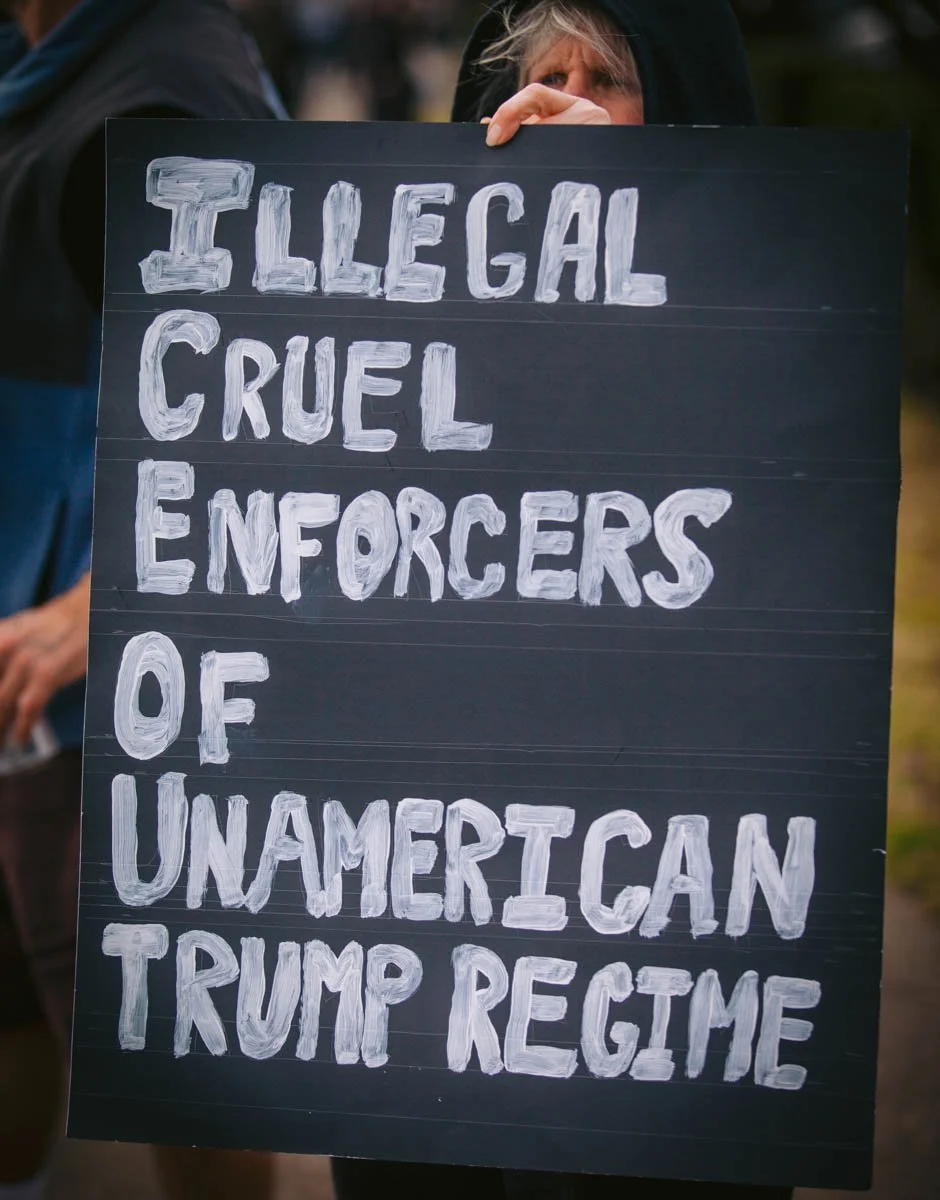 ILLEGAL
CRUEL
ENFORCERS
OF
UNAMERICAN
TRUMP REGIME